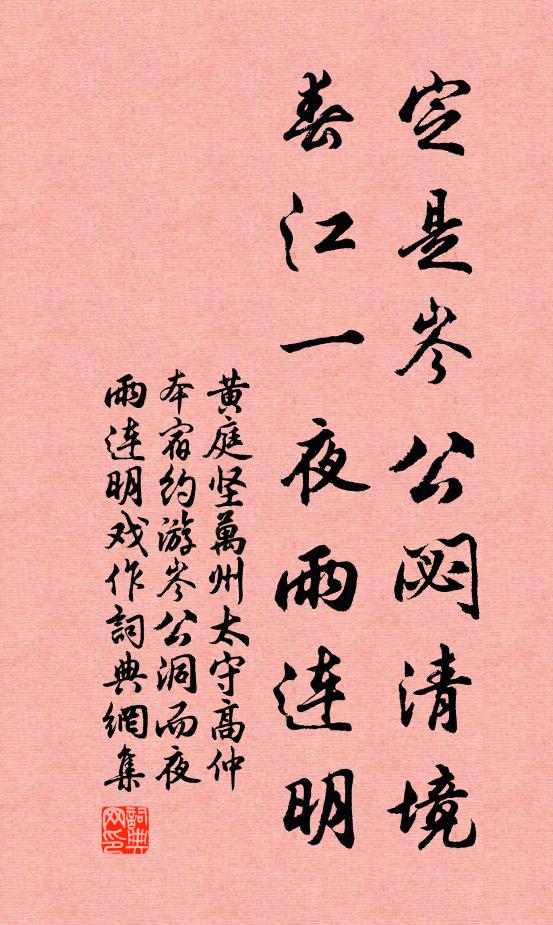 定是岑公閟清境
春江一夜雨连明
黄庭坚萬州太守高仲
本宿约游岑公洞而夜
雨连明戏作詞典網集
詞典网印